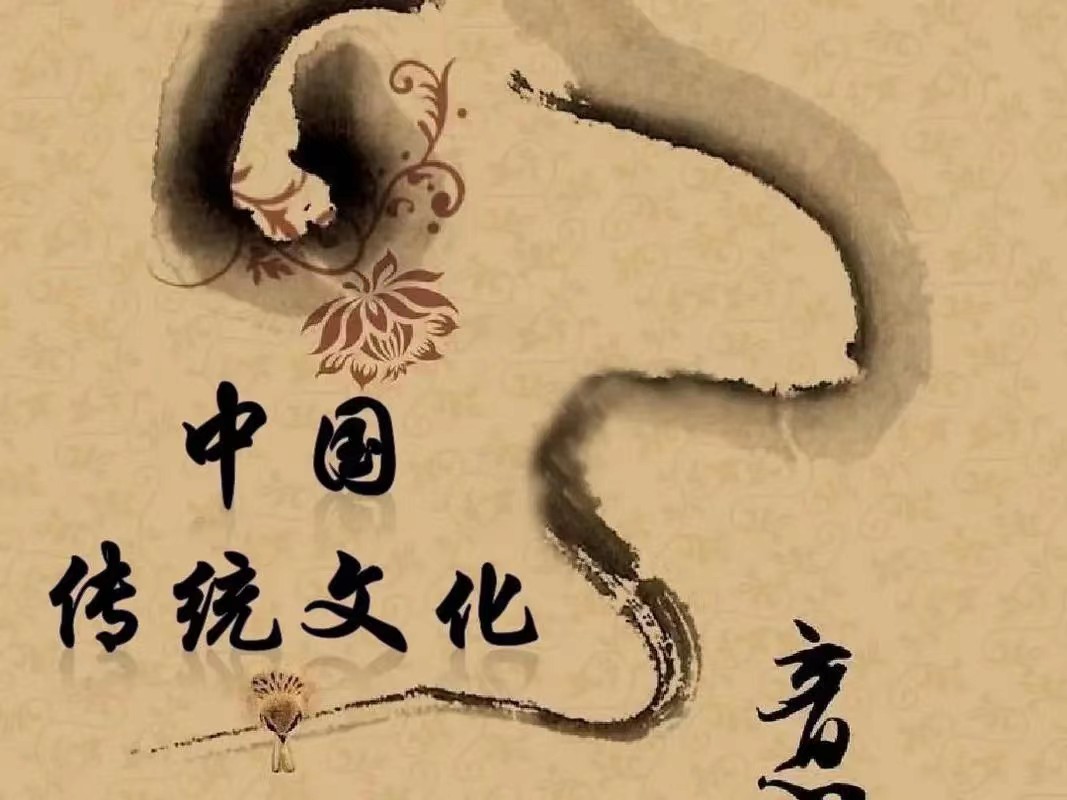 中国
传统文化
意